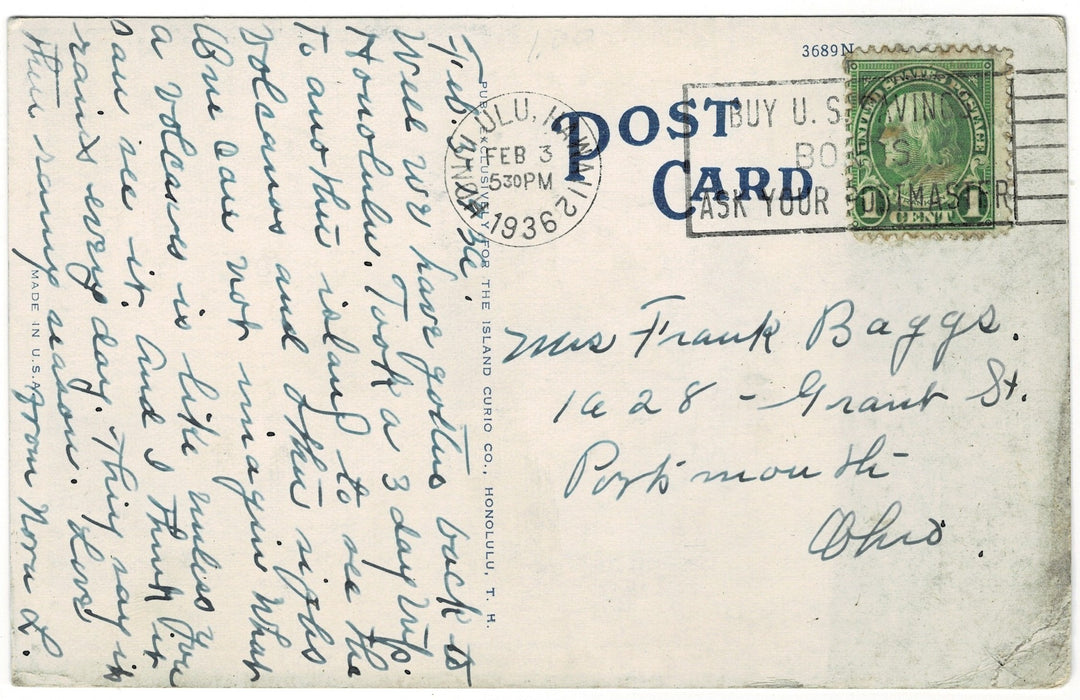 3689N
POST
CARD
HONOLULU, HAWAII
FEB 3
530PM
1936
BUY U.S. SAVINGS
BONDS
ASK YOUR POSTMASTER
UNITED STATES POSTAGE
1 CENT 1
Mrs Frank Baggs.
1028 - Grant St.
Portsmouth
Ohio.
Feb.
Well we have gotten back to
Honolulu. Took a 3 day trip
to another island to see the
Volcanos and other sights
One can not imagin What
a volcano is like unless you
can see it. And I think it
rains every day. They say it
their rainy season. Love
From Nora L.
PUB. EXCLUSIVELY FOR THE ISLAND CURIO CO., HONOLULU, T. H.
MADE IN U.S.A.